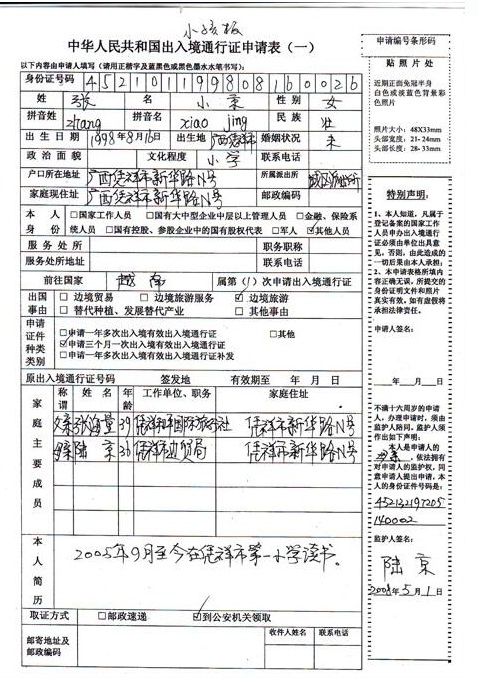 小孩板
中华人民共和国出入境通行证申请表（一）
以下内容由申请人填写（请用正楷字及蓝黑色或黑色墨水水笔书写）：
身份证号码 452101199808160026
姓 张 名 小京 性别 女
拼音姓 zhang 拼音名 xiao jing 民族 壮
出生日期 1998年8月16日 出生地 广西凭祥市 婚姻状况 未
政治面貌 文化程度 小学 联系电话
户口所在地址 广西凭祥市新华路N号 所属派出所
家庭现住址 广西凭祥市新华路N号 邮政编码
本人身份 □国家工作人员 □国有大中型企业中层以上管理人员 □金融、保险系
统人员 □国有控股、参股企业中的国有股权代表 □军人 ☑其他人员
服务处所 职务职称
服务处所地址 联系电话
前往国家 越南 属第（1）次申请出入境通行证
出国事由 □ 边境贸易 □ 边境旅游服务 ☑ 边境旅游
□ 替代种植、发展替代产业 □ 其他事由
申请证件种类类别 □申请一年多次出入境有效出入境通行证 □其他
☑申请三个月一次出入境有效出入境通行证
□申请一年多次出入境有效出入境通行证补发
原出入境通行证号码 签发地 有效期至 年 月 日
家庭主要成员 称谓 姓名 年龄 工作单位、职务 家庭住址
父亲 张海量 39 凭祥和国际旅行社 凭祥市新华路N号
母亲 陆京 36 凭祥市边贸局 凭祥市新华路N号
本人简历 2005年9月至今在凭祥市第一小学读书。
取证方式 □邮政速递 ☑到公安机关领取
邮寄地址及邮政编码 收件人姓名 联系电话
申请编号条形码
贴照片处
近期正面免冠半身
白色或淡蓝色背景彩
色照片
照片大小：48X33mm
头部宽度：21-24mm
头部长度：28-33mm
特别声明：
1、本人知道，凡属于
登记备案的国家工作
人员申办出入境通行
证必须由单位出具意
见，否则，由此造成的
一切后果由本人承担；
2、本申请表格所填内
容正确无误，所提交的
身份证明文件和照片
真实有效。如有虚假将
承担法律责任。
申请人签名：
年 月 日
不满十六周岁的申请
人，办理申请时，须由
监护人陪同。监护人须
作出如下声明：
本人是申请人的
，依法拥有
对申请人的监护权，同
意申请人提出申请，本
人的身份证件号码是：
452132197205
140002
监护人签名：
陆京
2008年5月1日